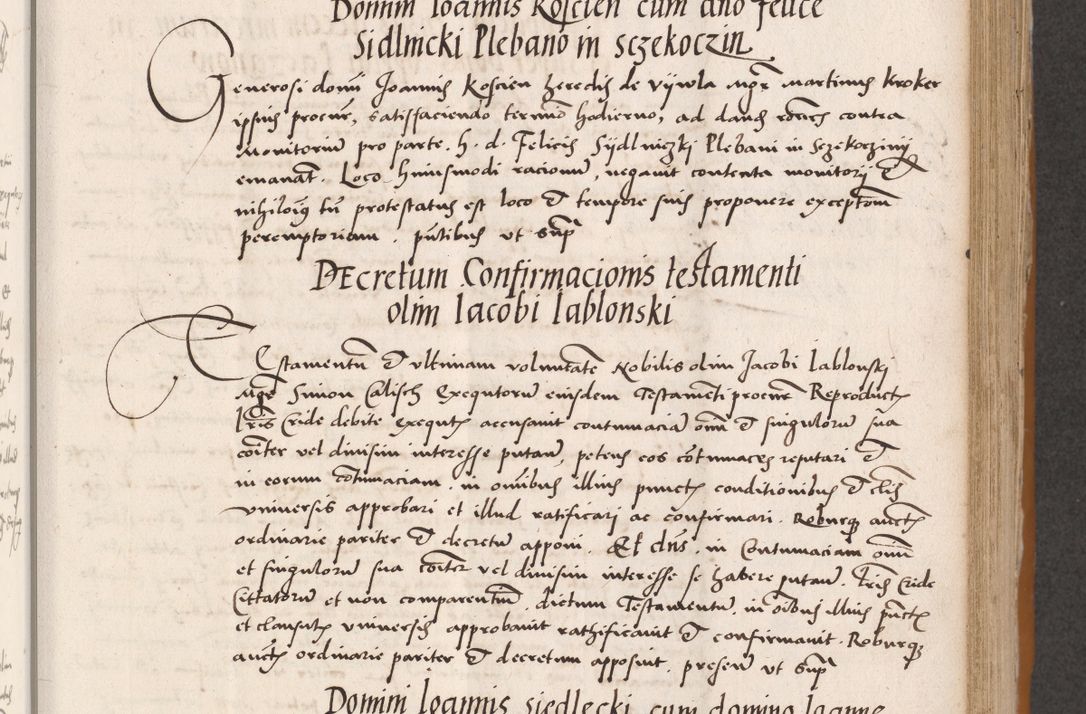 Domini Ioannis Koscien cum dno felice
Sidlnicki Plebano in sczekoczin
Generosi domi Joannis Koscien heredis de Vijwla Mgr Martinus Kroker
ipsius procur, satisfaciendo termio hodierno, ad dand contra
Monitoriu pro parte h. d. Felicis Sydlniczkj Plebani in Sczekoczinij
emanat. Loco huiusmodi racionu, negauit contenta monitorij et
nihiloig tn protestatus est loco et tempore suis proponere exceptom
peremptoriam. pntibus vt supr
DEcretum Confirmacionis testamenti
olim Iacobi Iablonski
Testamentu et vltimam voluntate Nobilis olim Jacobi Iablonskj
Mgr Simon Calisch Exequtoru eiusdem Testamenti procur Reproduct
lris Cride debite exequt accusauit contumacia oim et singuloru sua
coiter vel diuisim interesse putan, petens eos cotumaces reputari et
in eorum cotumaciam. in omibus illius punct conditionibus et clis
vniuersis approbari et illud ratificari ac confirmari. Roburq auct
ordinarie pariter et decretu apponi. Et dns. in Contumaciam oim
et singuloru sua coiter vel diuisim interesse se habere putan. lris Cride
Cittatoru et non comparentiu, dictum Testamentu, in oibus illius punct
et clausul vniuersis approbauit rathificauit et confirmauit. Roburq
auct ordinarie pariter et decretum apposuit. presen vt supr
Domini Ioannis siedlecki cum domino Ioanne